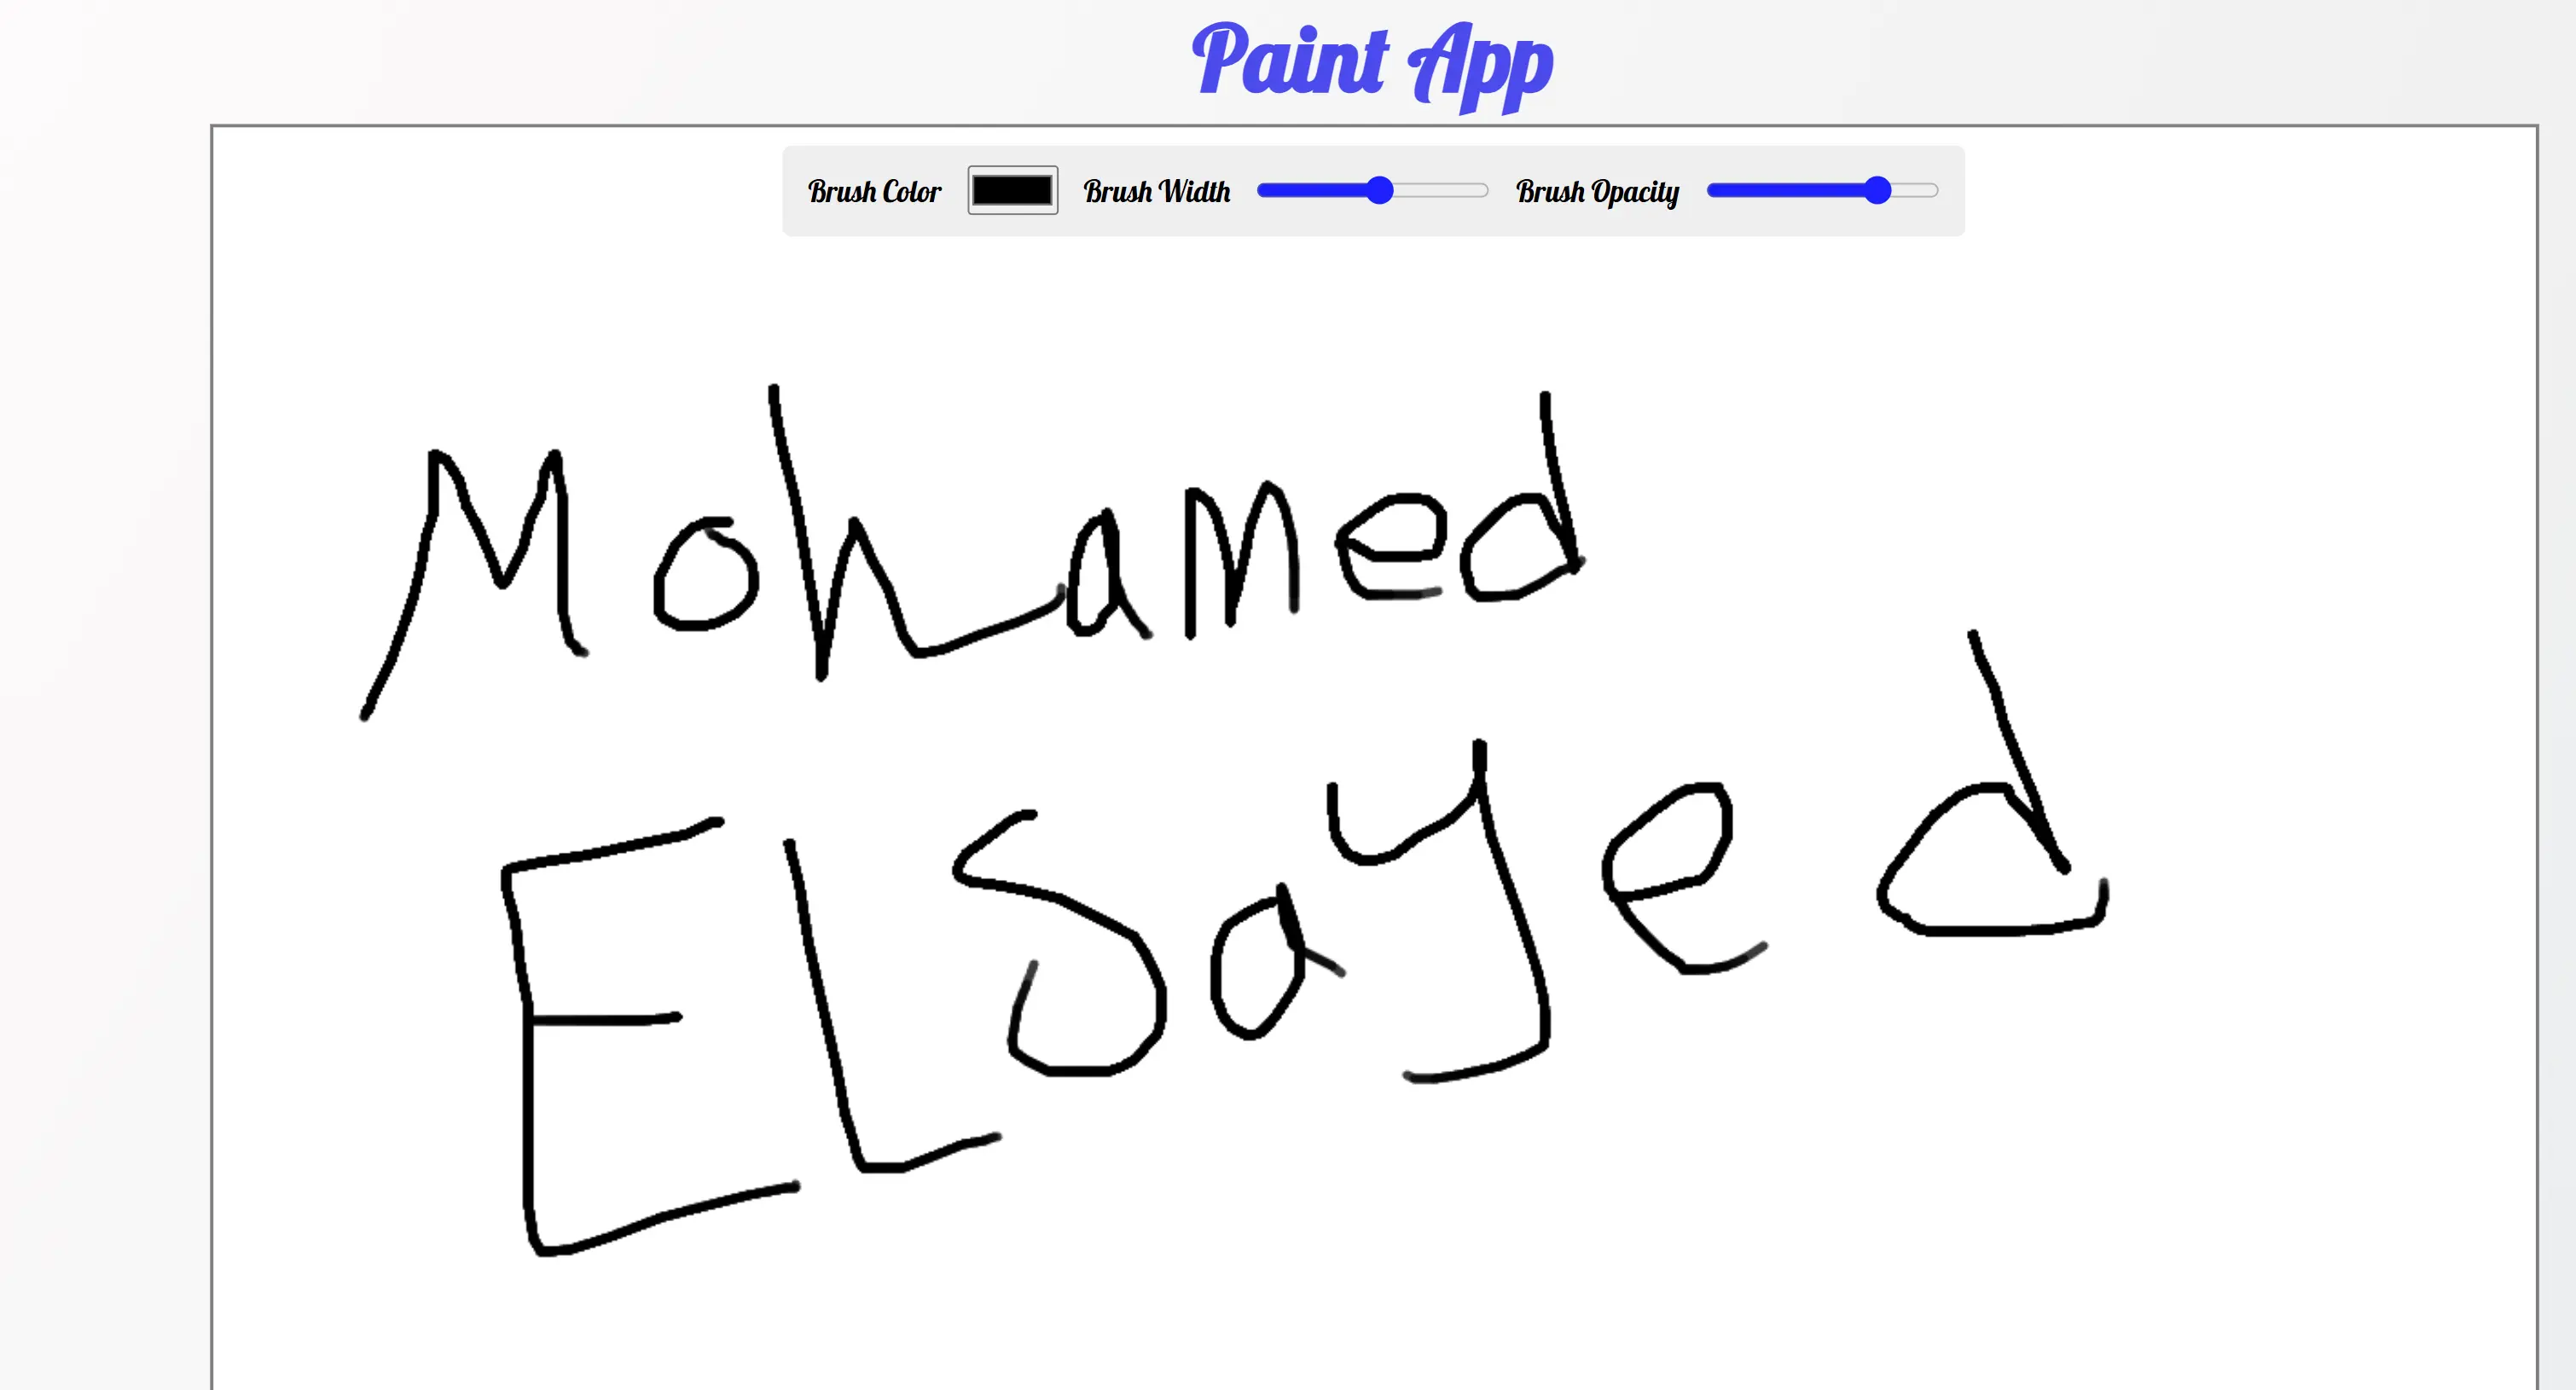 Paint App
Brush Color Brush Width Brush Opacity
Mohamed
ELSayed